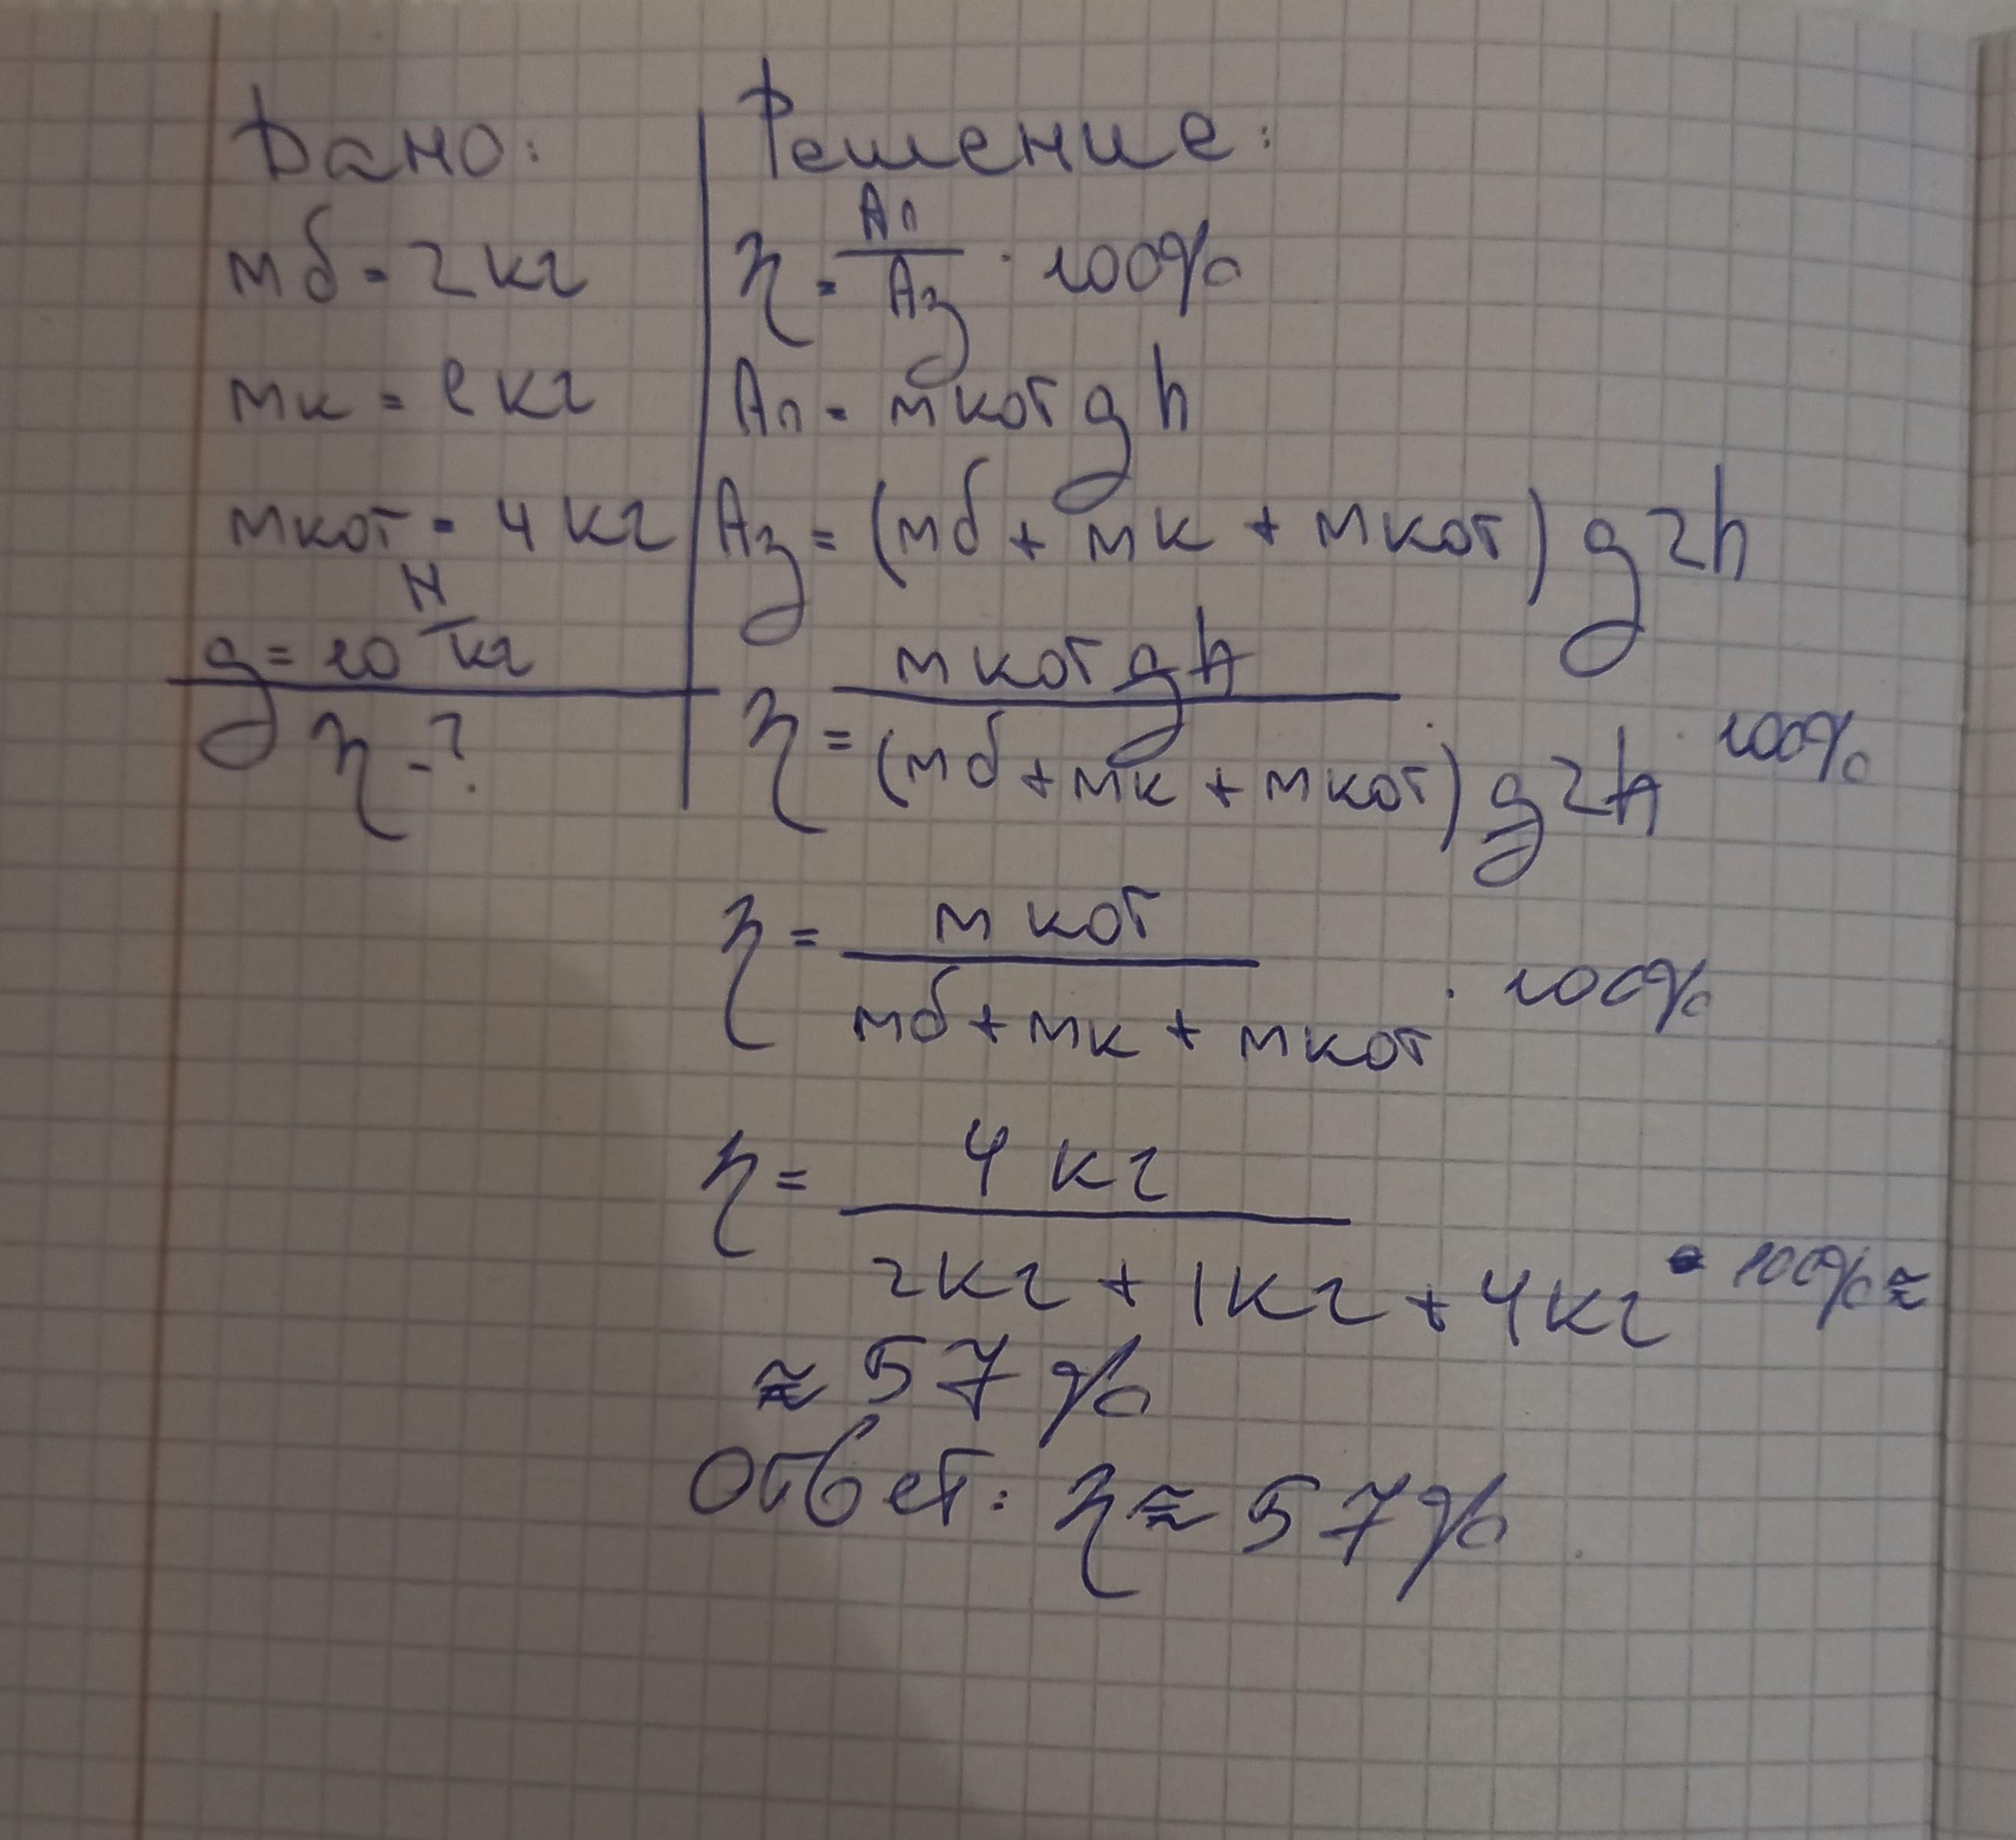 Дано:
mб = 2 кг
mк = 1 кг
mкот = 4 кг
g = 10 Н/кг
η - ?
Решение:
η = Aп/Aз · 100%
Aп = mкот g h
Aз = (mб + mк + mкот) g 2h
η = mкот g h / (mб + mк + mкот) g 2h · 100%
η = mкот / mб + mк + mкот · 100%
η = 4 кг / 2 кг + 1 кг + 4 кг · 100% ≈
≈ 57 %
Ответ: η ≈ 57%